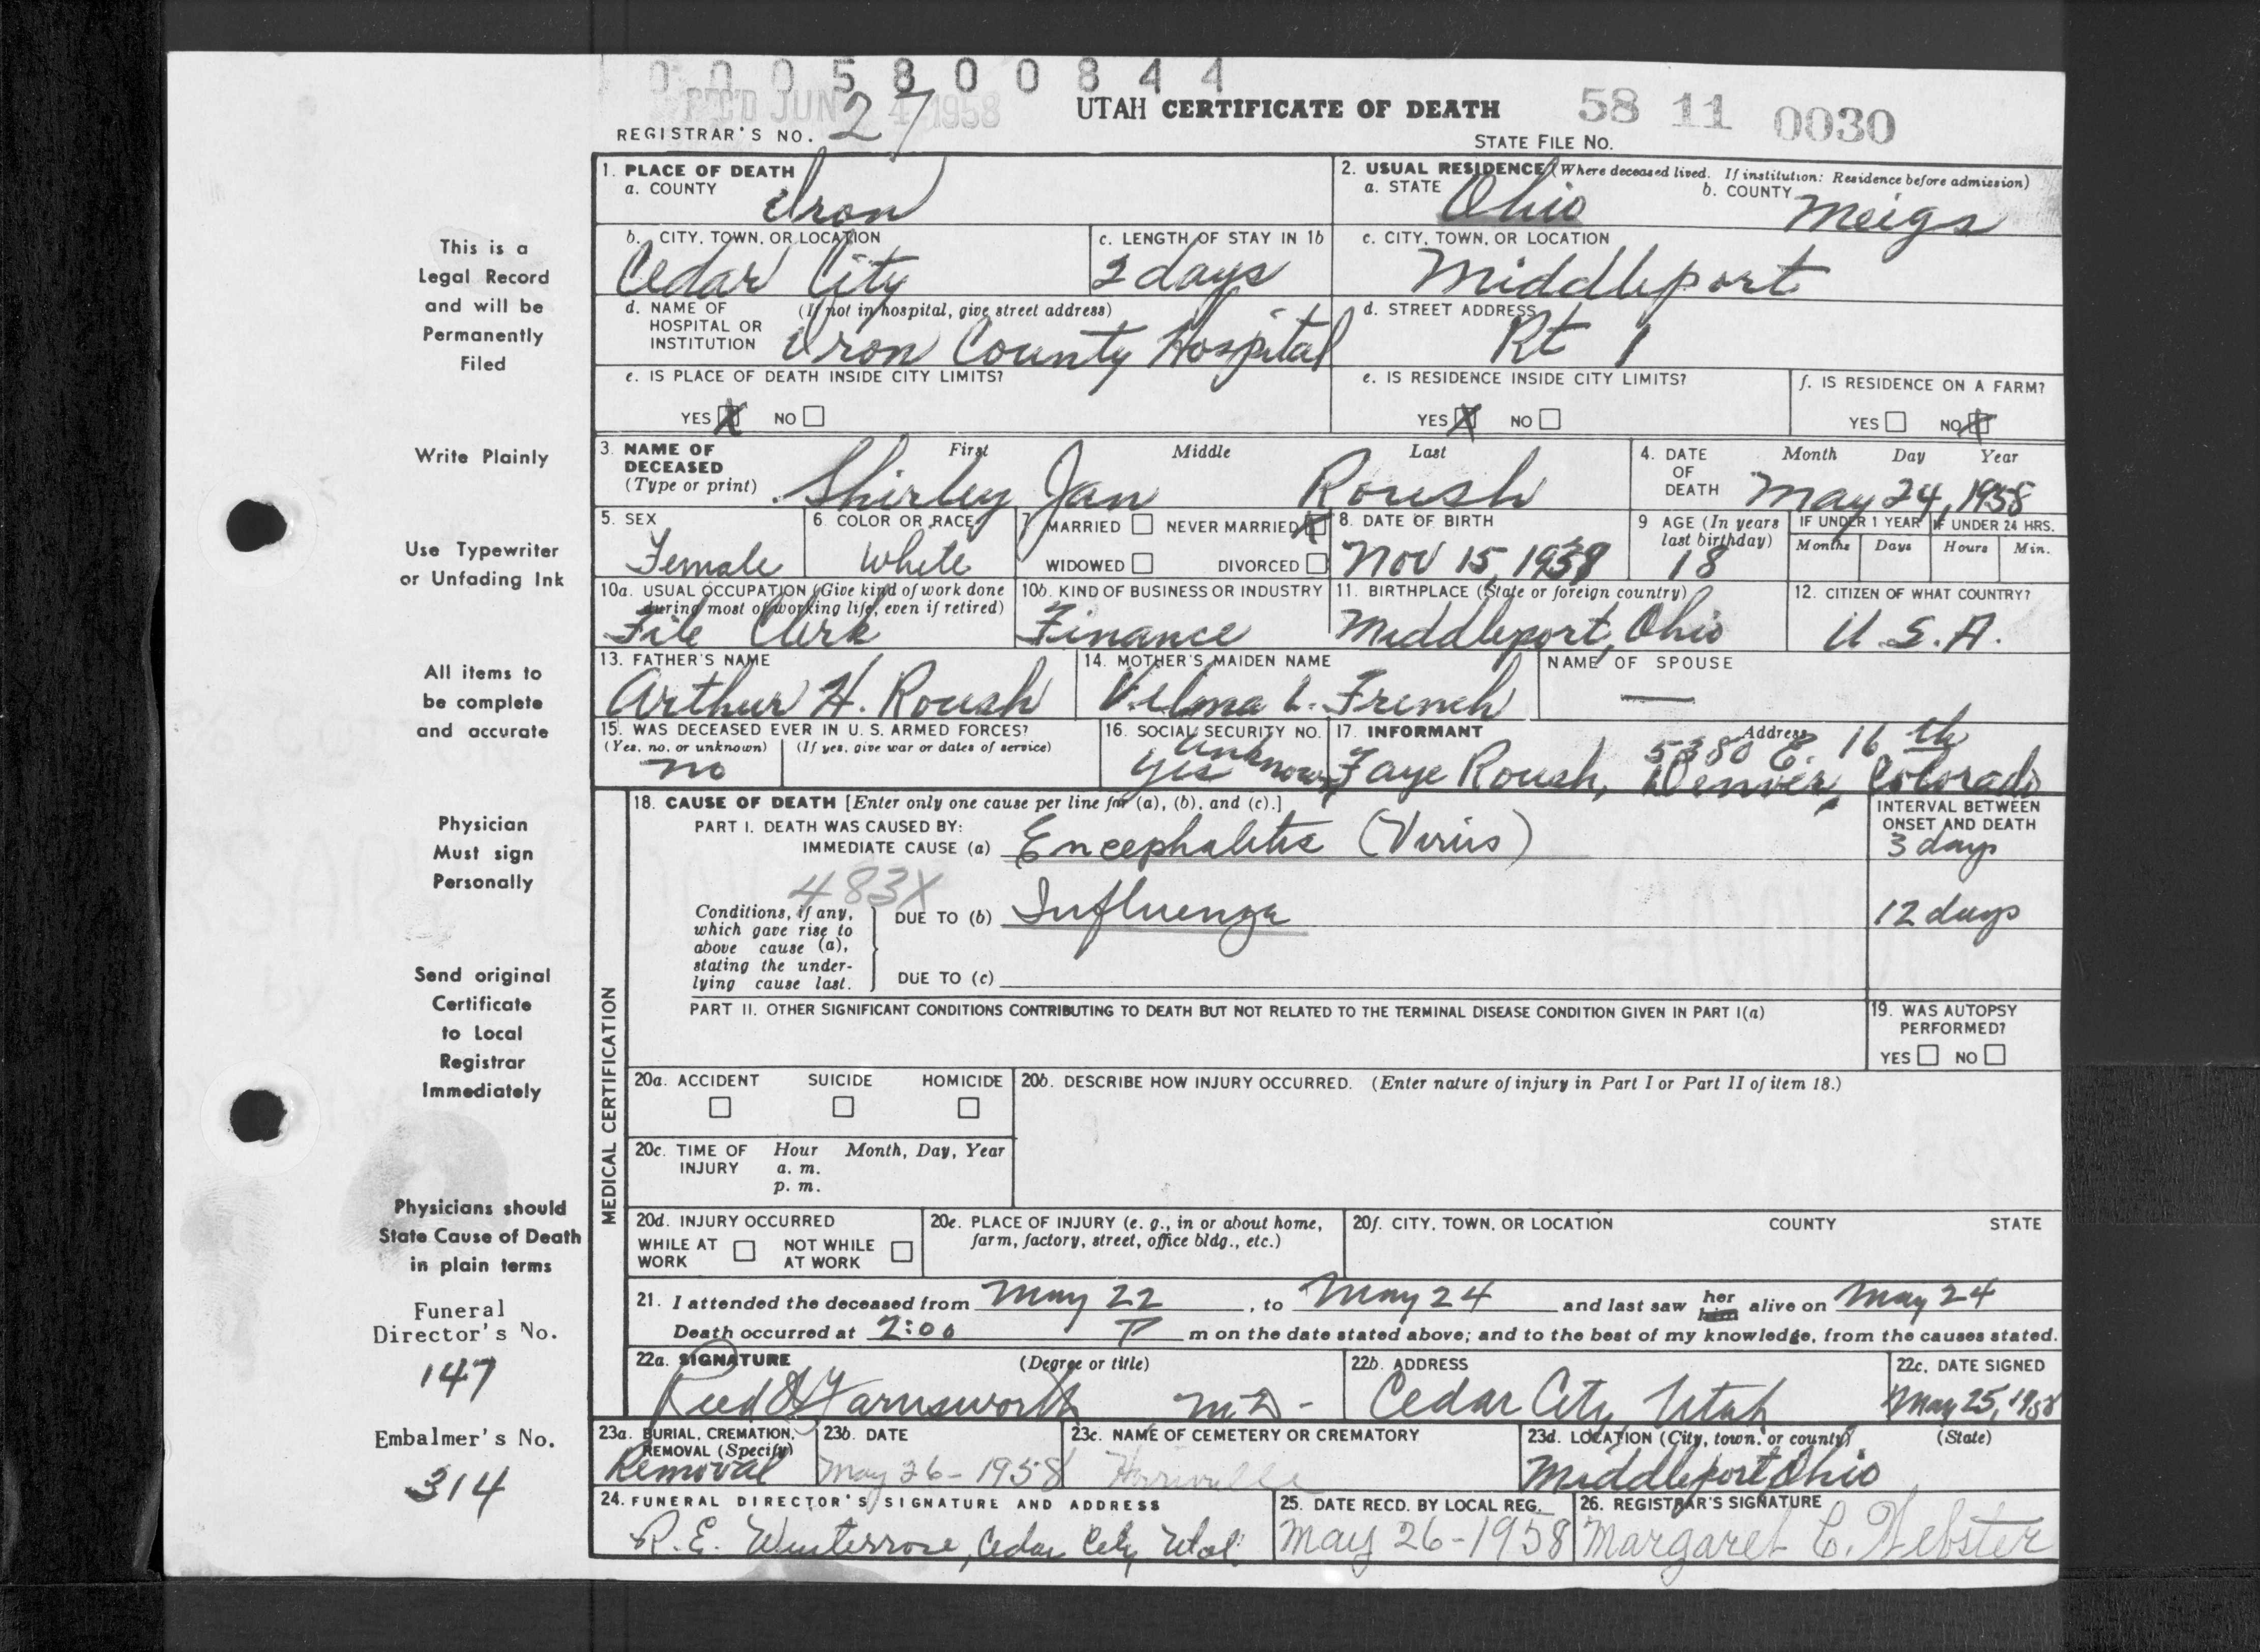 0 0 0 5 8 0 0 8 4 4
REC'D JUN 4 1958
UTAH CERTIFICATE OF DEATH 58 11 0030
REGISTRAR'S NO. 27
STATE FILE NO.
1. PLACE OF DEATH
a. COUNTY Iron
2. USUAL RESIDENCE (Where deceased lived. If institution: Residence before admission)
a. STATE Ohio b. COUNTY Meigs
b. CITY, TOWN, OR LOCATION Cedar City
c. LENGTH OF STAY IN 1b 2 days
c. CITY, TOWN, OR LOCATION Middleport
d. NAME OF HOSPITAL OR INSTITUTION (If not in hospital, give street address) Iron County Hospital
d. STREET ADDRESS Rt 1
e. IS PLACE OF DEATH INSIDE CITY LIMITS?
YES X NO
e. IS RESIDENCE INSIDE CITY LIMITS?
YES X NO
f. IS RESIDENCE ON A FARM?
YES NO X
3. NAME OF DECEASED (Type or print) First Middle Last
Shirley Jan Roush
4. DATE OF DEATH Month Day Year
May 24, 1958
5. SEX Female
6. COLOR OR RACE White
7. MARRIED NEVER MARRIED X
WIDOWED DIVORCED
8. DATE OF BIRTH Nov 15, 1939
9 AGE (In years last birthday) 18
IF UNDER 1 YEAR Months Days
IF UNDER 24 HRS. Hours Min.
10a. USUAL OCCUPATION (Give kind of work done during most of working life, even if retired)
File Clerk
10b. KIND OF BUSINESS OR INDUSTRY
Finance
11. BIRTHPLACE (State or foreign country)
Middleport, Ohio
12. CITIZEN OF WHAT COUNTRY?
U.S.A.
13. FATHER'S NAME
Arthur H. Roush
14. MOTHER'S MAIDEN NAME
Velma L. French
NAME OF SPOUSE
—
15. WAS DECEASED EVER IN U. S. ARMED FORCES?
(Yes, no, or unknown) (If yes, give war or dates of service)
no
16. SOCIAL SECURITY NO.
yes unknown
17. INFORMANT Address
Faye Roush, 5380 E. 16th Denver, Colorado
18. CAUSE OF DEATH [Enter only one cause per line for (a), (b), and (c).]
INTERVAL BETWEEN ONSET AND DEATH
PART I. DEATH WAS CAUSED BY:
IMMEDIATE CAUSE (a) Encephalitis (Virus) 3 days
483X
Conditions, if any, which gave rise to above cause (a), stating the underlying cause last.
DUE TO (b) Influenza 12 days
DUE TO (c)
PART II. OTHER SIGNIFICANT CONDITIONS CONTRIBUTING TO DEATH BUT NOT RELATED TO THE TERMINAL DISEASE CONDITION GIVEN IN PART I(a)
19. WAS AUTOPSY PERFORMED?
YES NO
MEDICAL CERTIFICATION
20a. ACCIDENT SUICIDE HOMICIDE
20b. DESCRIBE HOW INJURY OCCURRED. (Enter nature of injury in Part I or Part II of item 18.)
20c. TIME OF INJURY Hour Month, Day, Year
a. m.
p. m.
20d. INJURY OCCURRED
WHILE AT WORK NOT WHILE AT WORK
20e. PLACE OF INJURY (e. g., in or about home, farm, factory, street, office bldg., etc.)
20f. CITY, TOWN, OR LOCATION COUNTY STATE
21. I attended the deceased from May 22, to May 24 and last saw her him alive on May 24
Death occurred at 2:00 P m on the date stated above; and to the best of my knowledge, from the causes stated.
22a. SIGNATURE (Degree or title)
Reed Farnsworth M D -
22b. ADDRESS
Cedar City Utah
22c. DATE SIGNED
May 25, 1958
23a. BURIAL, CREMATION, REMOVAL (Specify)
Removal
23b. DATE
May 26-1958
23c. NAME OF CEMETERY OR CREMATORY
23d. LOCATION (City, town, or county) (State)
Middleport, Ohio
24. FUNERAL DIRECTOR'S SIGNATURE AND ADDRESS
R. E. Winterrose, Cedar City Utah
25. DATE RECD. BY LOCAL REG.
May 26-1958
26. REGISTRAR'S SIGNATURE
Margaret C. Webster
This is a
Legal Record
and will be
Permanently
Filed
Write Plainly
Use Typewriter
or Unfading Ink
All items to
be complete
and accurate
Physician
Must sign
Personally
Send original
Certificate
to Local
Registrar
Immediately
Physicians should
State Cause of Death
in plain terms
Funeral
Director's No.
147
Embalmer's No.
314